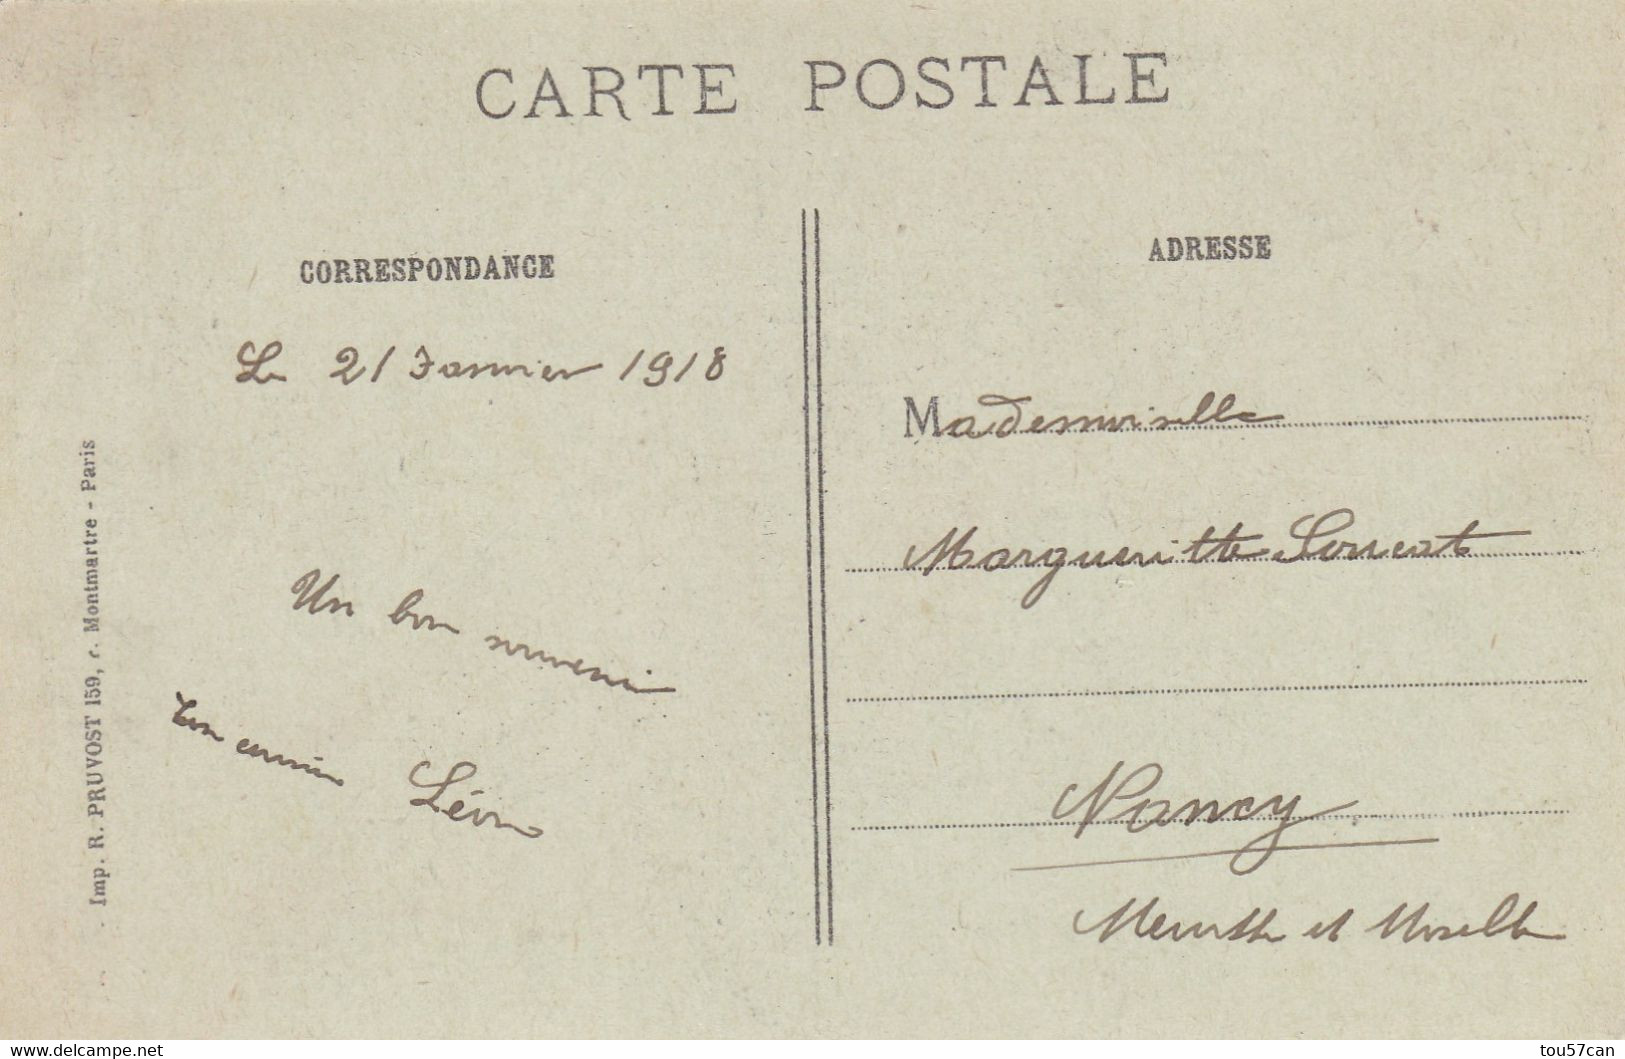 CARTE POSTALE
CORRESPONDANCE
Le 21 Janvier 1918
Un bon souvenir
Ton cousin Léon
Imp. R. PRUVOST 159, r. Montmartre - Paris
ADRESSE
Mademoiselle
Margueritte
Nancy
Meurthe et Moselle
www.delcampe.net
tou57can